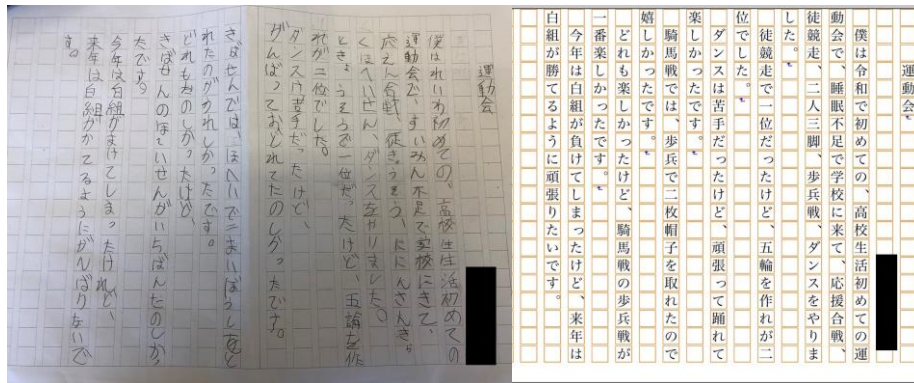 運動会
僕はれいわ初めての、高校生生活初めての
運動会で、すいみん不足で学校にきて、
応えん合戦、徒きょうそう、ににんさんきゃ
くほへいせん、ダンスをやりました。
ときょうそうで一位だったけど、五論を作
れが二位でした。
ダンスは苦手だったけど、
がんばっておどれてたのしかったです。
きばせんでは、ほへいで二まいぼうし
れたのがうれしかったです。
どれもたのしかったけど、
きばせんのほへいせんがいちばんたのしかっ
たです。
今年は白組がまけてしまったけれど、
来年は白組がかてるようにがんばりたいで
す。
運動会
僕は令和で初めての、高校生活初めての運
動会で、睡眠不足で学校に来て、応援合戦、
徒競走、二人三脚、歩兵戦、ダンスをやりま
した。
徒競走で一位だったけど、五輪を作れが二
位でした。
ダンスは苦手だったけど、頑張って踊れて
楽しかったです。
騎馬戦では、歩兵で二枚帽子を取れたので
嬉しかったです。
どれも楽しかったけど、騎馬戦の歩兵戦が
一番楽しかったです。
今年は白組が負けてしまったけど、来年は
白組が勝てるように頑張りたいです。